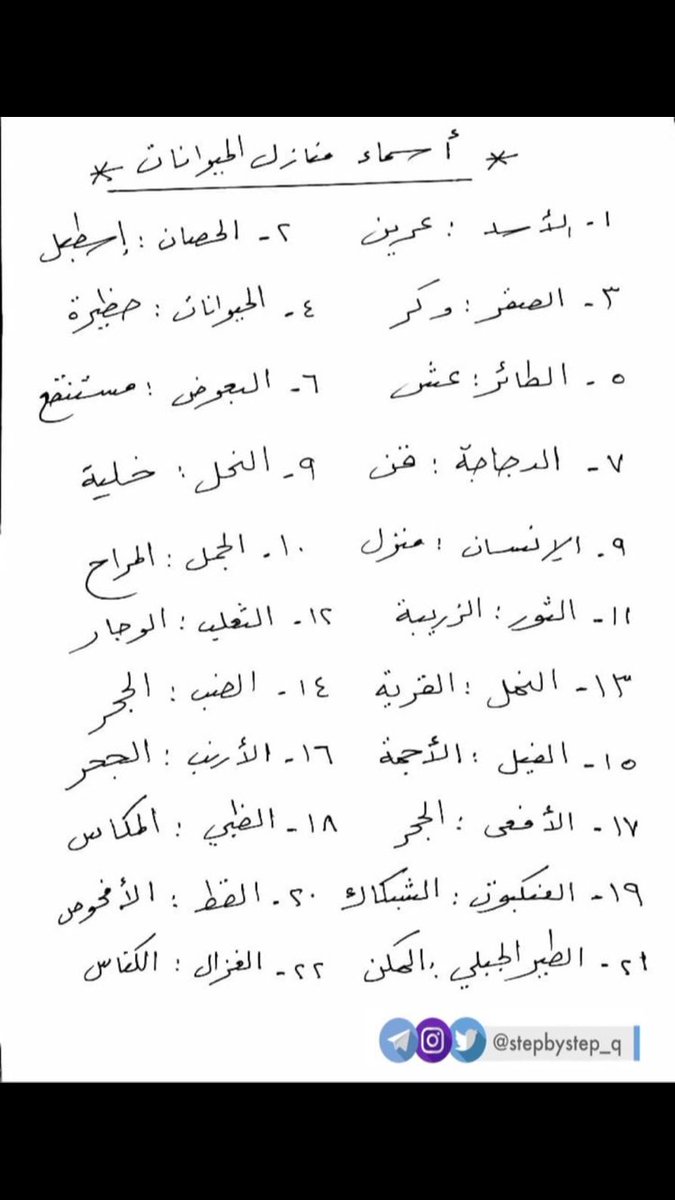 * أسماء منازل الحيوانات *
١- الأسد : عرين ٢- الحصان : إسطبل
٣- الصقر : وكر ٤- الحيوانات : حظيرة
٥- الطائر : عش ٦- البعوض : مستنقع
٧- الدجاجة : قن ٩- النحل : خلية
٩- الإنسان : منزل ١٠- الجمل : المراح
١١- الثور : الزريبة ١٢- الثعلب : الوجار
١٣- النمل : القرية ١٤- الضب : الجحر
١٥- الفيل : الأجمة ١٦- الأرنب : الجحر
١٧- الأفعى : الجحر ١٨- الظبي : المكاس
١٩- العنكبوت : الشبكاك ٢٠- القط : الأفحوص
٢١- الطير الجبلي : المكن ٢٢- الغزال : الكناس
@stepbystep_q